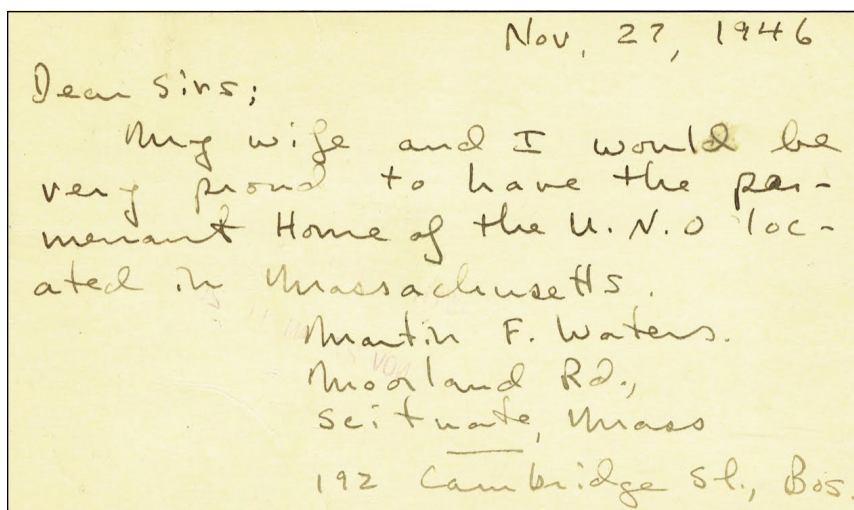 Nov, 27, 1946
Dear Sirs;
My wife and I would be
very proud to have the per-
menant Home of the U.N.O loc-
ated in Massachusetts.
Martin F. Waters.
Moorland Rd.,
Scituate, Mass
192 Cambridge St., Bos.